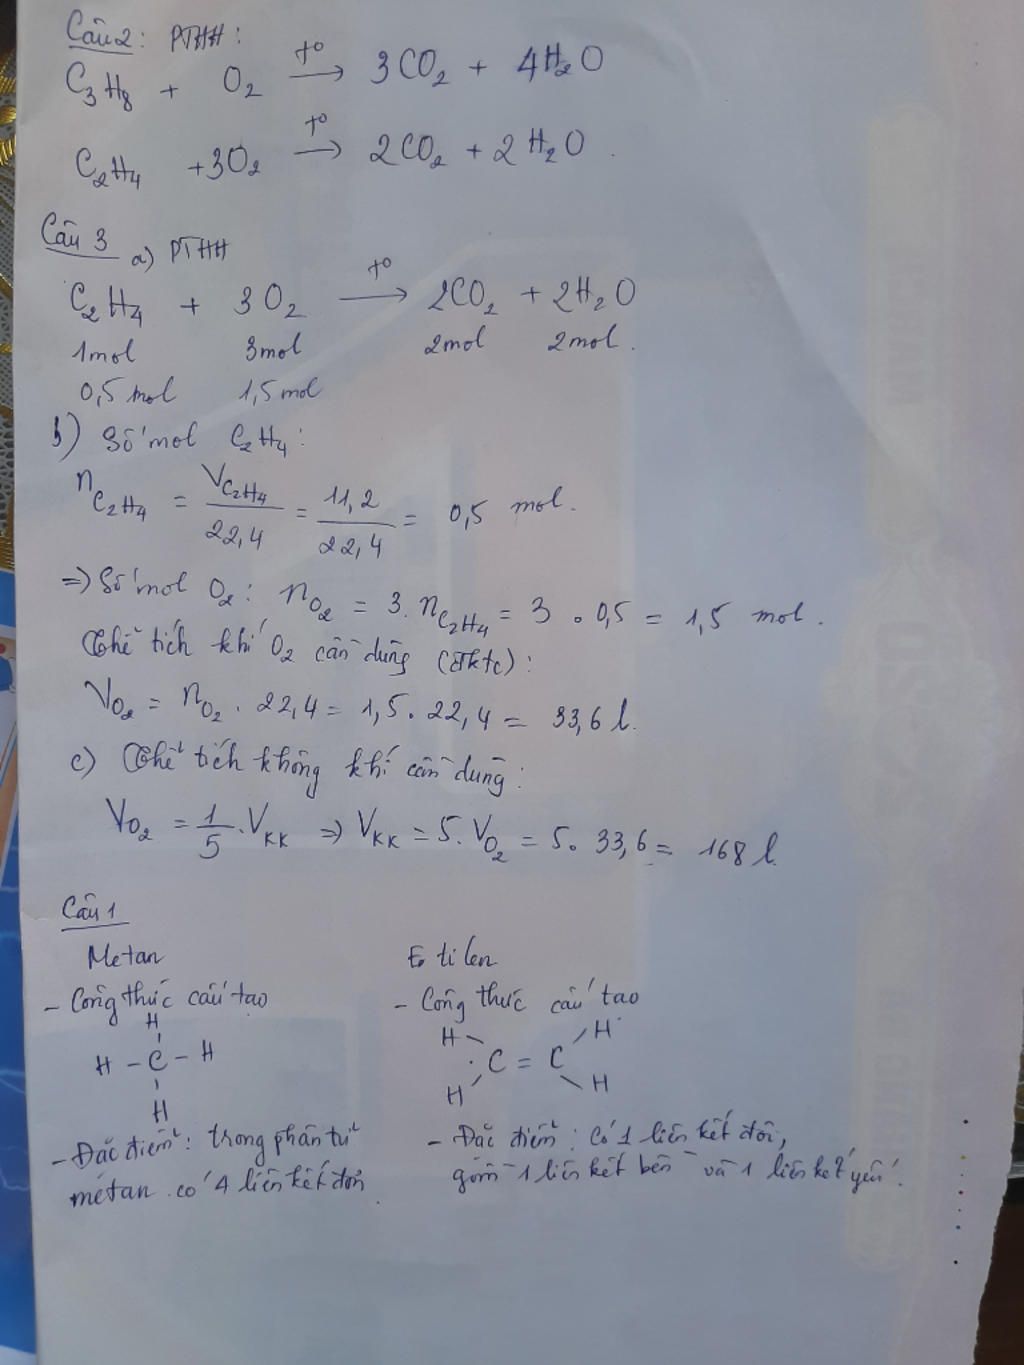 Câu 2: PTHH:
C₃H₈ + O₂ →(t⁰) 3CO₂ + 4H₂O
C₂H₄ +3O₂ →(t⁰) 2CO₂ + 2H₂O
Câu 3 a) PTHH
C₂H₄ + 3O₂ →(t⁰) 2CO₂ + 2H₂O
1mol 3mol 2mol 2mol.
0,5 mol 1,5 mol
b) Số mol C₂H₄:
n C₂H₄ = V C₂H₄ / 22,4 = 11,2 / 22,4 = 0,5 mol.
=> Số mol O₂: n O₂ = 3. n C₂H₄ = 3 . 0,5 = 1,5 mol.
Thể tích khí O₂ cần dùng (đktc):
V O₂ = n O₂ . 22,4 = 1,5. 22,4 = 33,6 l.
c) Thể tích không khí cần dùng:
V O₂ = 1/5 . V KK => V KK = 5. V O₂ = 5. 33,6 = 168 l
Câu 1
Metan Etilen
- Công thức cấu tạo - Công thức cấu tạo
H H H
H - C - H C = C
H H H
- Đặc điểm: trong phân tử - Đặc điểm: Có 1 liên kết đôi,
metan có 4 liên kết đơn gồm 1 liên kết bền và 1 liên kết yếu.